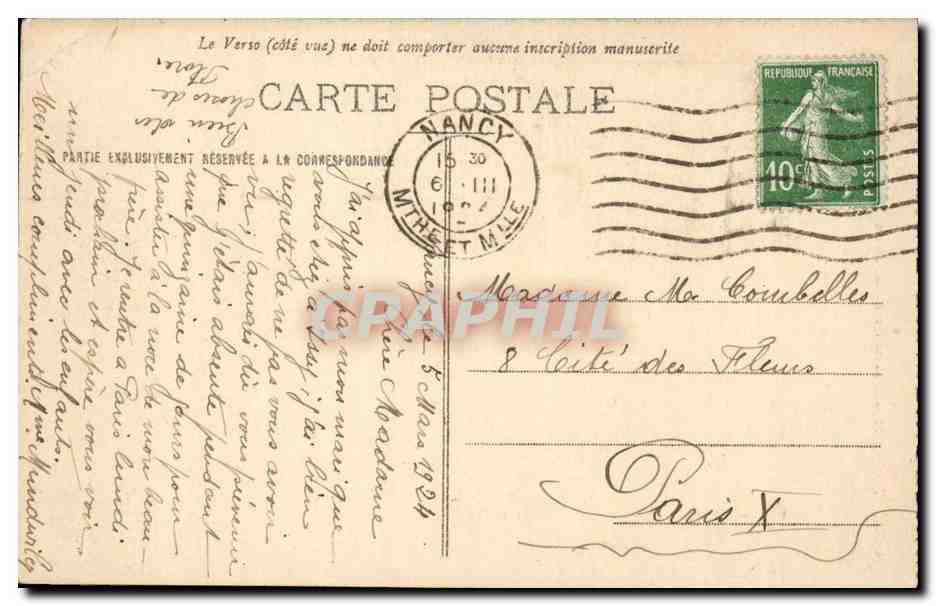 Le Verso (côté vue) ne doit comporter aucune inscription manuscrite
CARTE POSTALE
PARTIE EXCLUSIVEMENT RÉSERVÉE A LA CORRESPONDANCE
REPUBLIQUE FRANÇAISE
10c
POSTES
NANCY
15 30
6 III
MTHE ET MLLE
Nancy le 5 Mars 1924
Chère Madame
J'ai appris par mon mari que
vous êtes passey j'ai bien
regretté de ne pas vous avoir
vu, j'aurais dû vous prévenir
que j'étais absente pendant
une quinzaine de jours pour
assister à la noce de mon beau-
père. Je rentre à Paris lundi
prochain et espère vous voir
un jeudi avec les enfants.
Meilleures compliments Mme
Bien des
choses de
Madame M. Combelles
8 Cité des Fleurs
Paris X
CPAPHIL